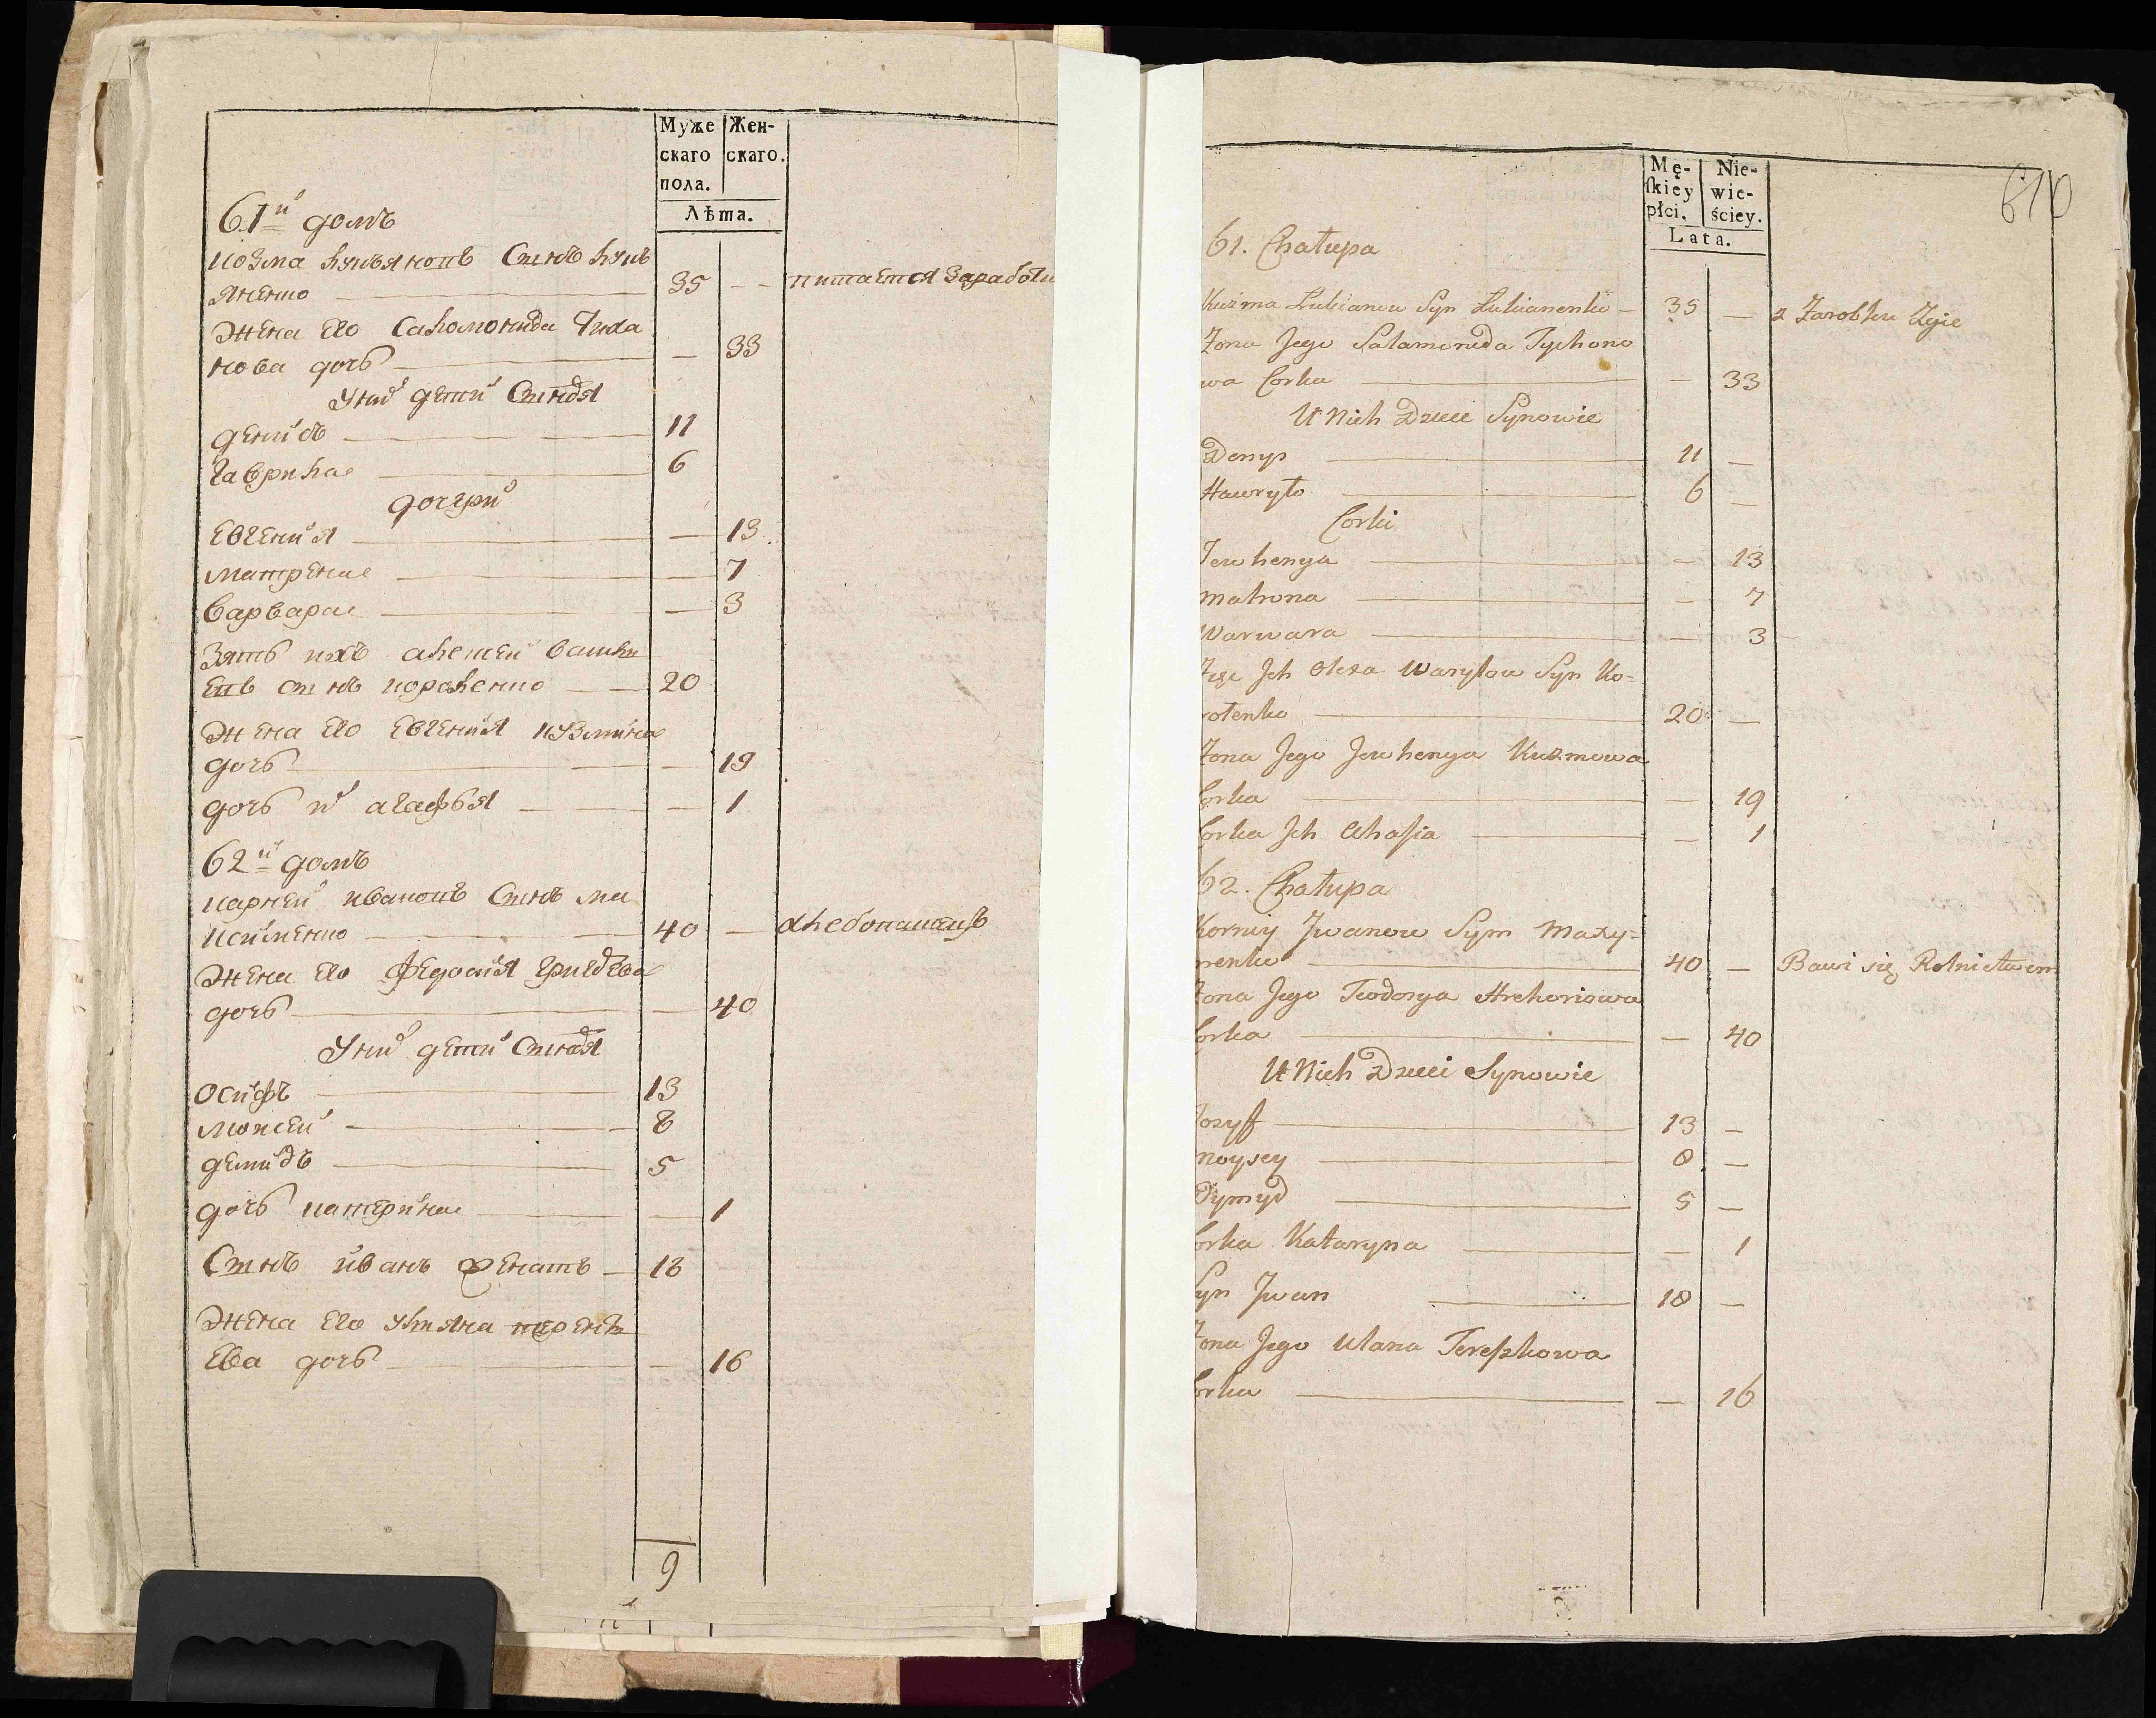 Муже
скаго
пола.
Жен-
скаго.
Лѣта.
61й домъ
козма лукъяновъ Синъ лукъ
яненко 35 — питается заработк
жена его Саломонида Тихо
нова дочь — 33
У них дети Синовя
денисъ 11
гаврила 6
дочери
Евгения — 13
матрена — 7
варвара — 3
Зять ихъ алексей васил
евъ синъ короленко — 20
жена его Евгения кузмина
дочь — 19
дочь их агафья — 1
62й домъ
карней ивановъ Синъ ма
ксименко 40 — хлебопашецъ
жена его федосия григорева
дочь — 40
У них дети Синовя
осифъ 13
мойсей 8
демидъ 5
дочь катерина — 1
Синъ иванъ женатъ 18
жена его улияна терен
ева дочь — 16
9
610
Mę-
skiey
płci.
Nie-
wie-
ściey.
Lata.
61. Chałupa
Kuźma Łukianow Syn Łukianenko — 35 — z Zarobku Żyie
Żona Jego Salamonida Tychono
wa Corka — 33
U Nich Dzieci Synowie
Denys 11 —
Hawryło 6 —
Corki
Jewhenya — 13
Matrona — 7
Warwara — 3
Jch Olexa Wasylow Syn Ko-
rolenko 20 —
Żona Jego Jewhenya Kuzmowa
Corka — 19
Corka Jch Ahafia — 1
62. Chałupa
Korniy Jwanow Syn Maxy-
menko 40 — Bawi się Rolnictwem
Żona Jego Teodosya Hrehoriowa
Corka — 40
U Nich Dzieci Synowie
Jozyff 13 —
Moysey 8 —
Dymyd 5 —
Corka Kataryna — 1
Syn Jwan 18 —
Żona Jego Ulana Tereszkowa
Corka — 16